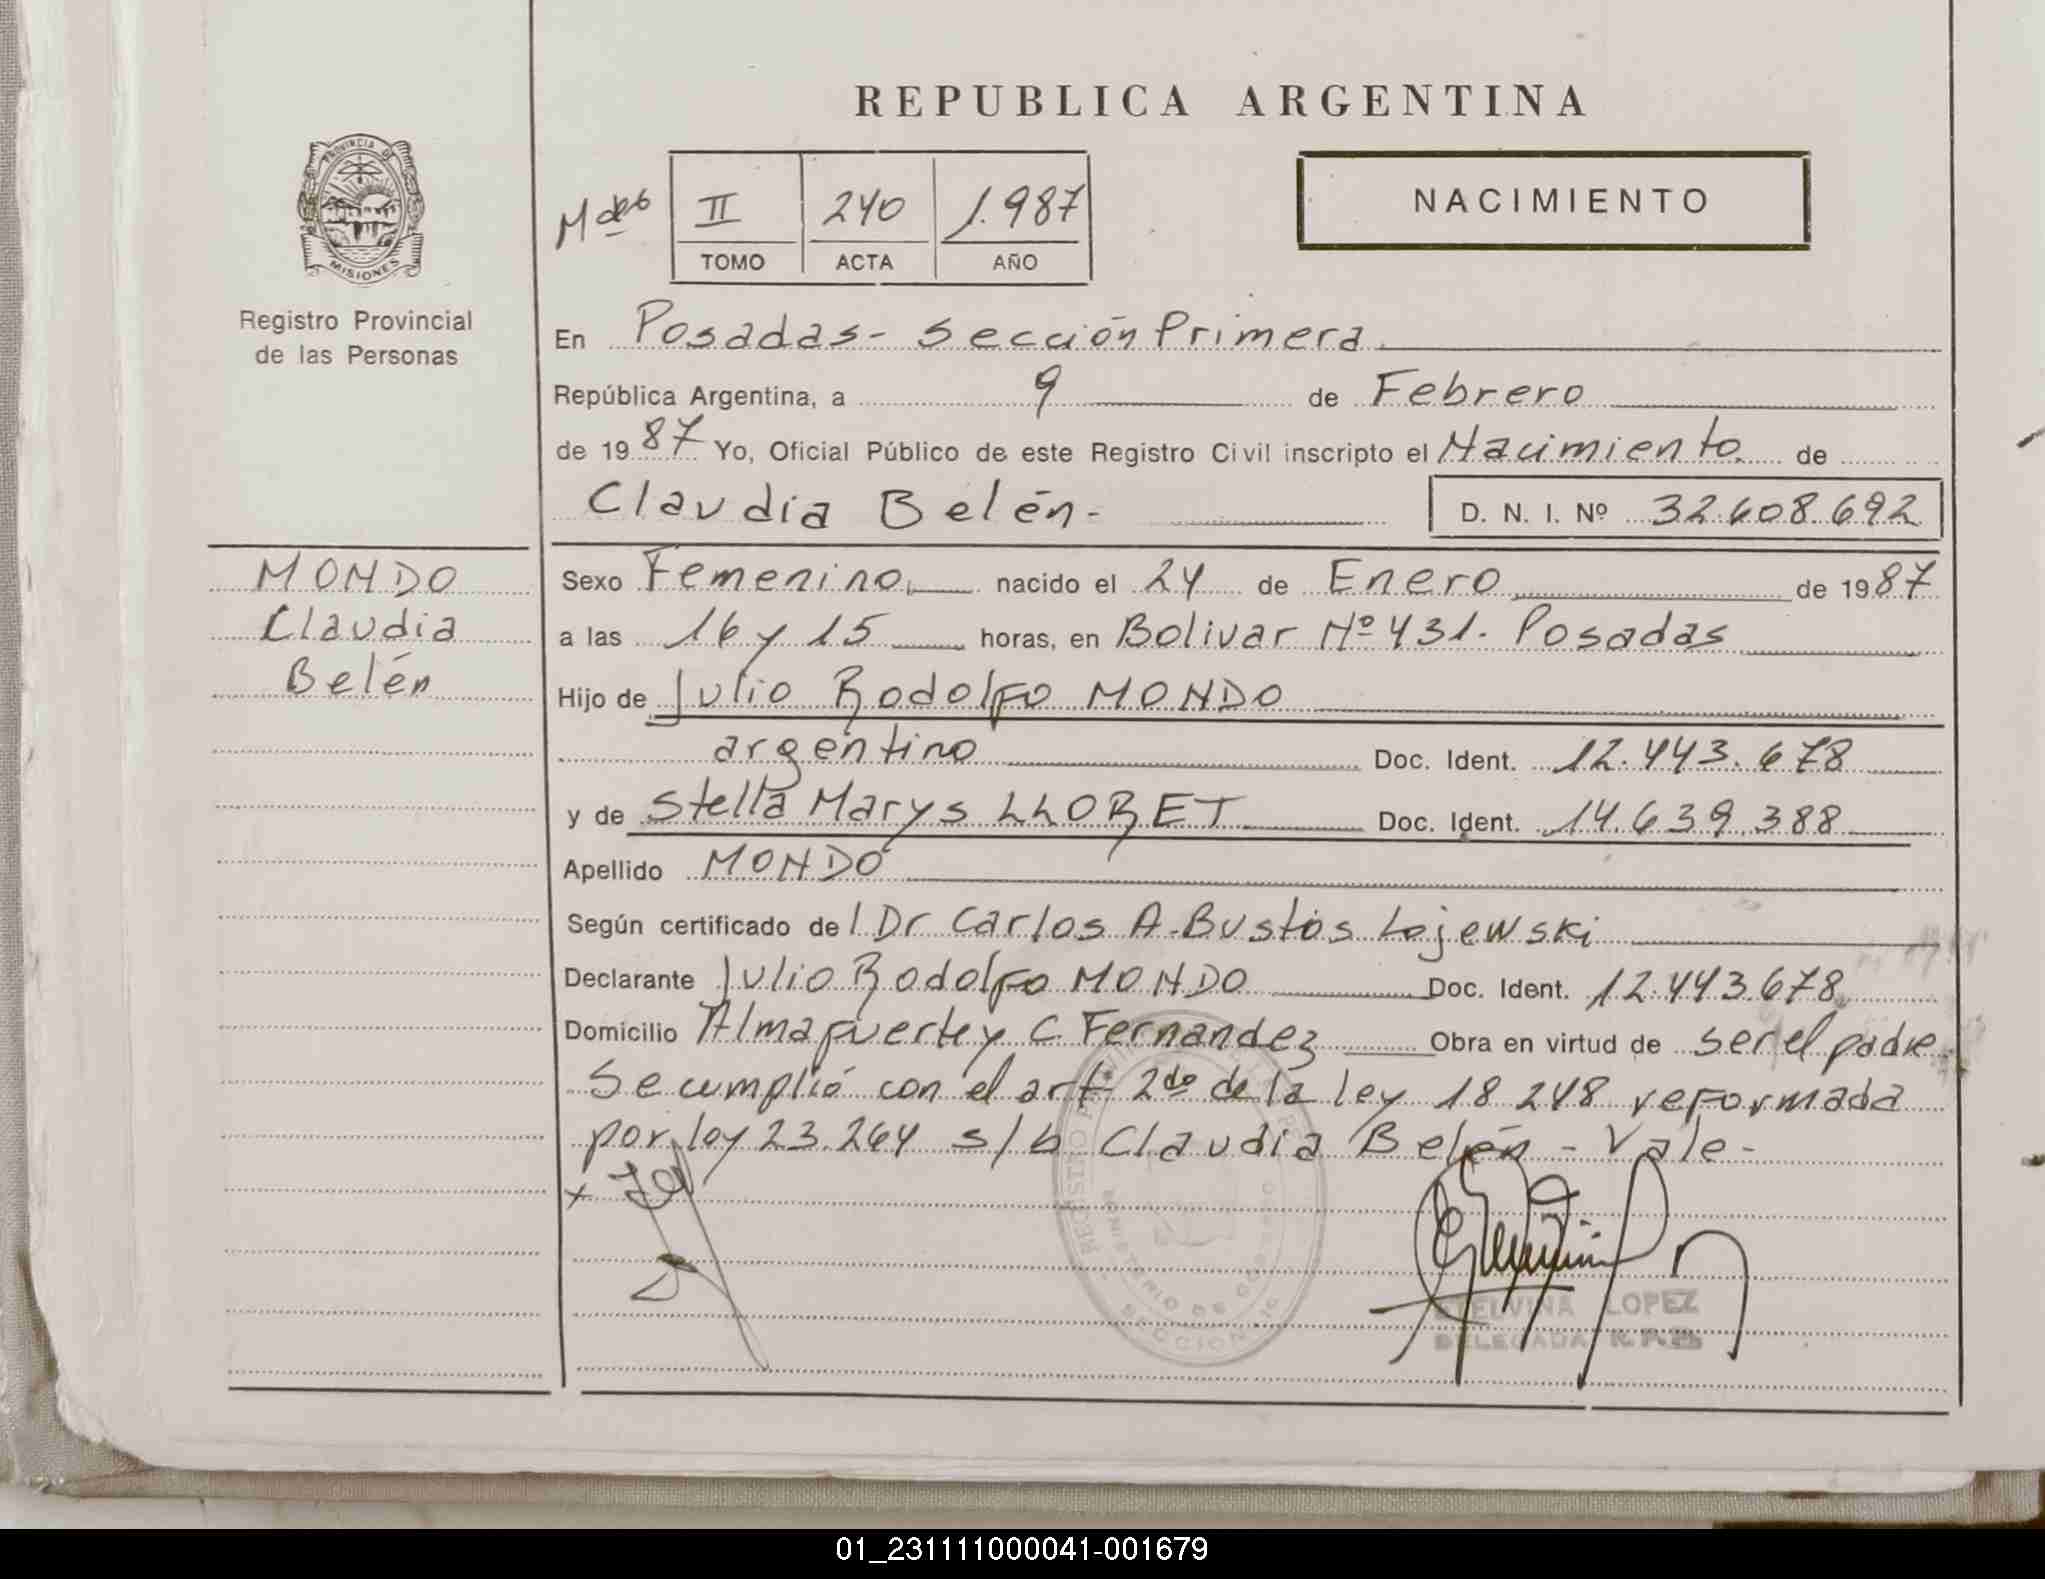 REPUBLICA ARGENTINA
PROVINCIA DE
MISIONES
Registro Provincial
de las Personas
II 240 1.987
TOMO ACTA AÑO
NACIMIENTO
En Posadas- Sección Primera
República Argentina, a 9 de Febrero
de 1987 Yo, Oficial Público de este Registro Civil inscripto el Nacimiento de
Claudia Belén- D. N. I. Nº 32.608.692
MONDO
Claudia
Belén
Sexo Femenino, nacido el 24 de Enero de 1987
a las 16 y 15 horas, en Bolivar Nº 431. Posadas
Hijo de Julio Rodolfo MONDO
argentino Doc. Ident. 12.443.678
y de Stella Marys LLORET Doc. Ident. 14.639.388
Apellido MONDO
Según certificado de Dr Carlos A. Bustos Lojewski
Declarante Julio Rodolfo MONDO Doc. Ident. 12.443.678
Domicilio Almafuerte y C. Fernandez Obra en virtud de ser el padre
Se cumplió con el art 2do de la ley 18 248 reformada
por ley 23.264 s/b Claudia Belén - Vale-
ETELVINA LOPEZ
DELEGADA R.P.Ps
01_231111000041-001679